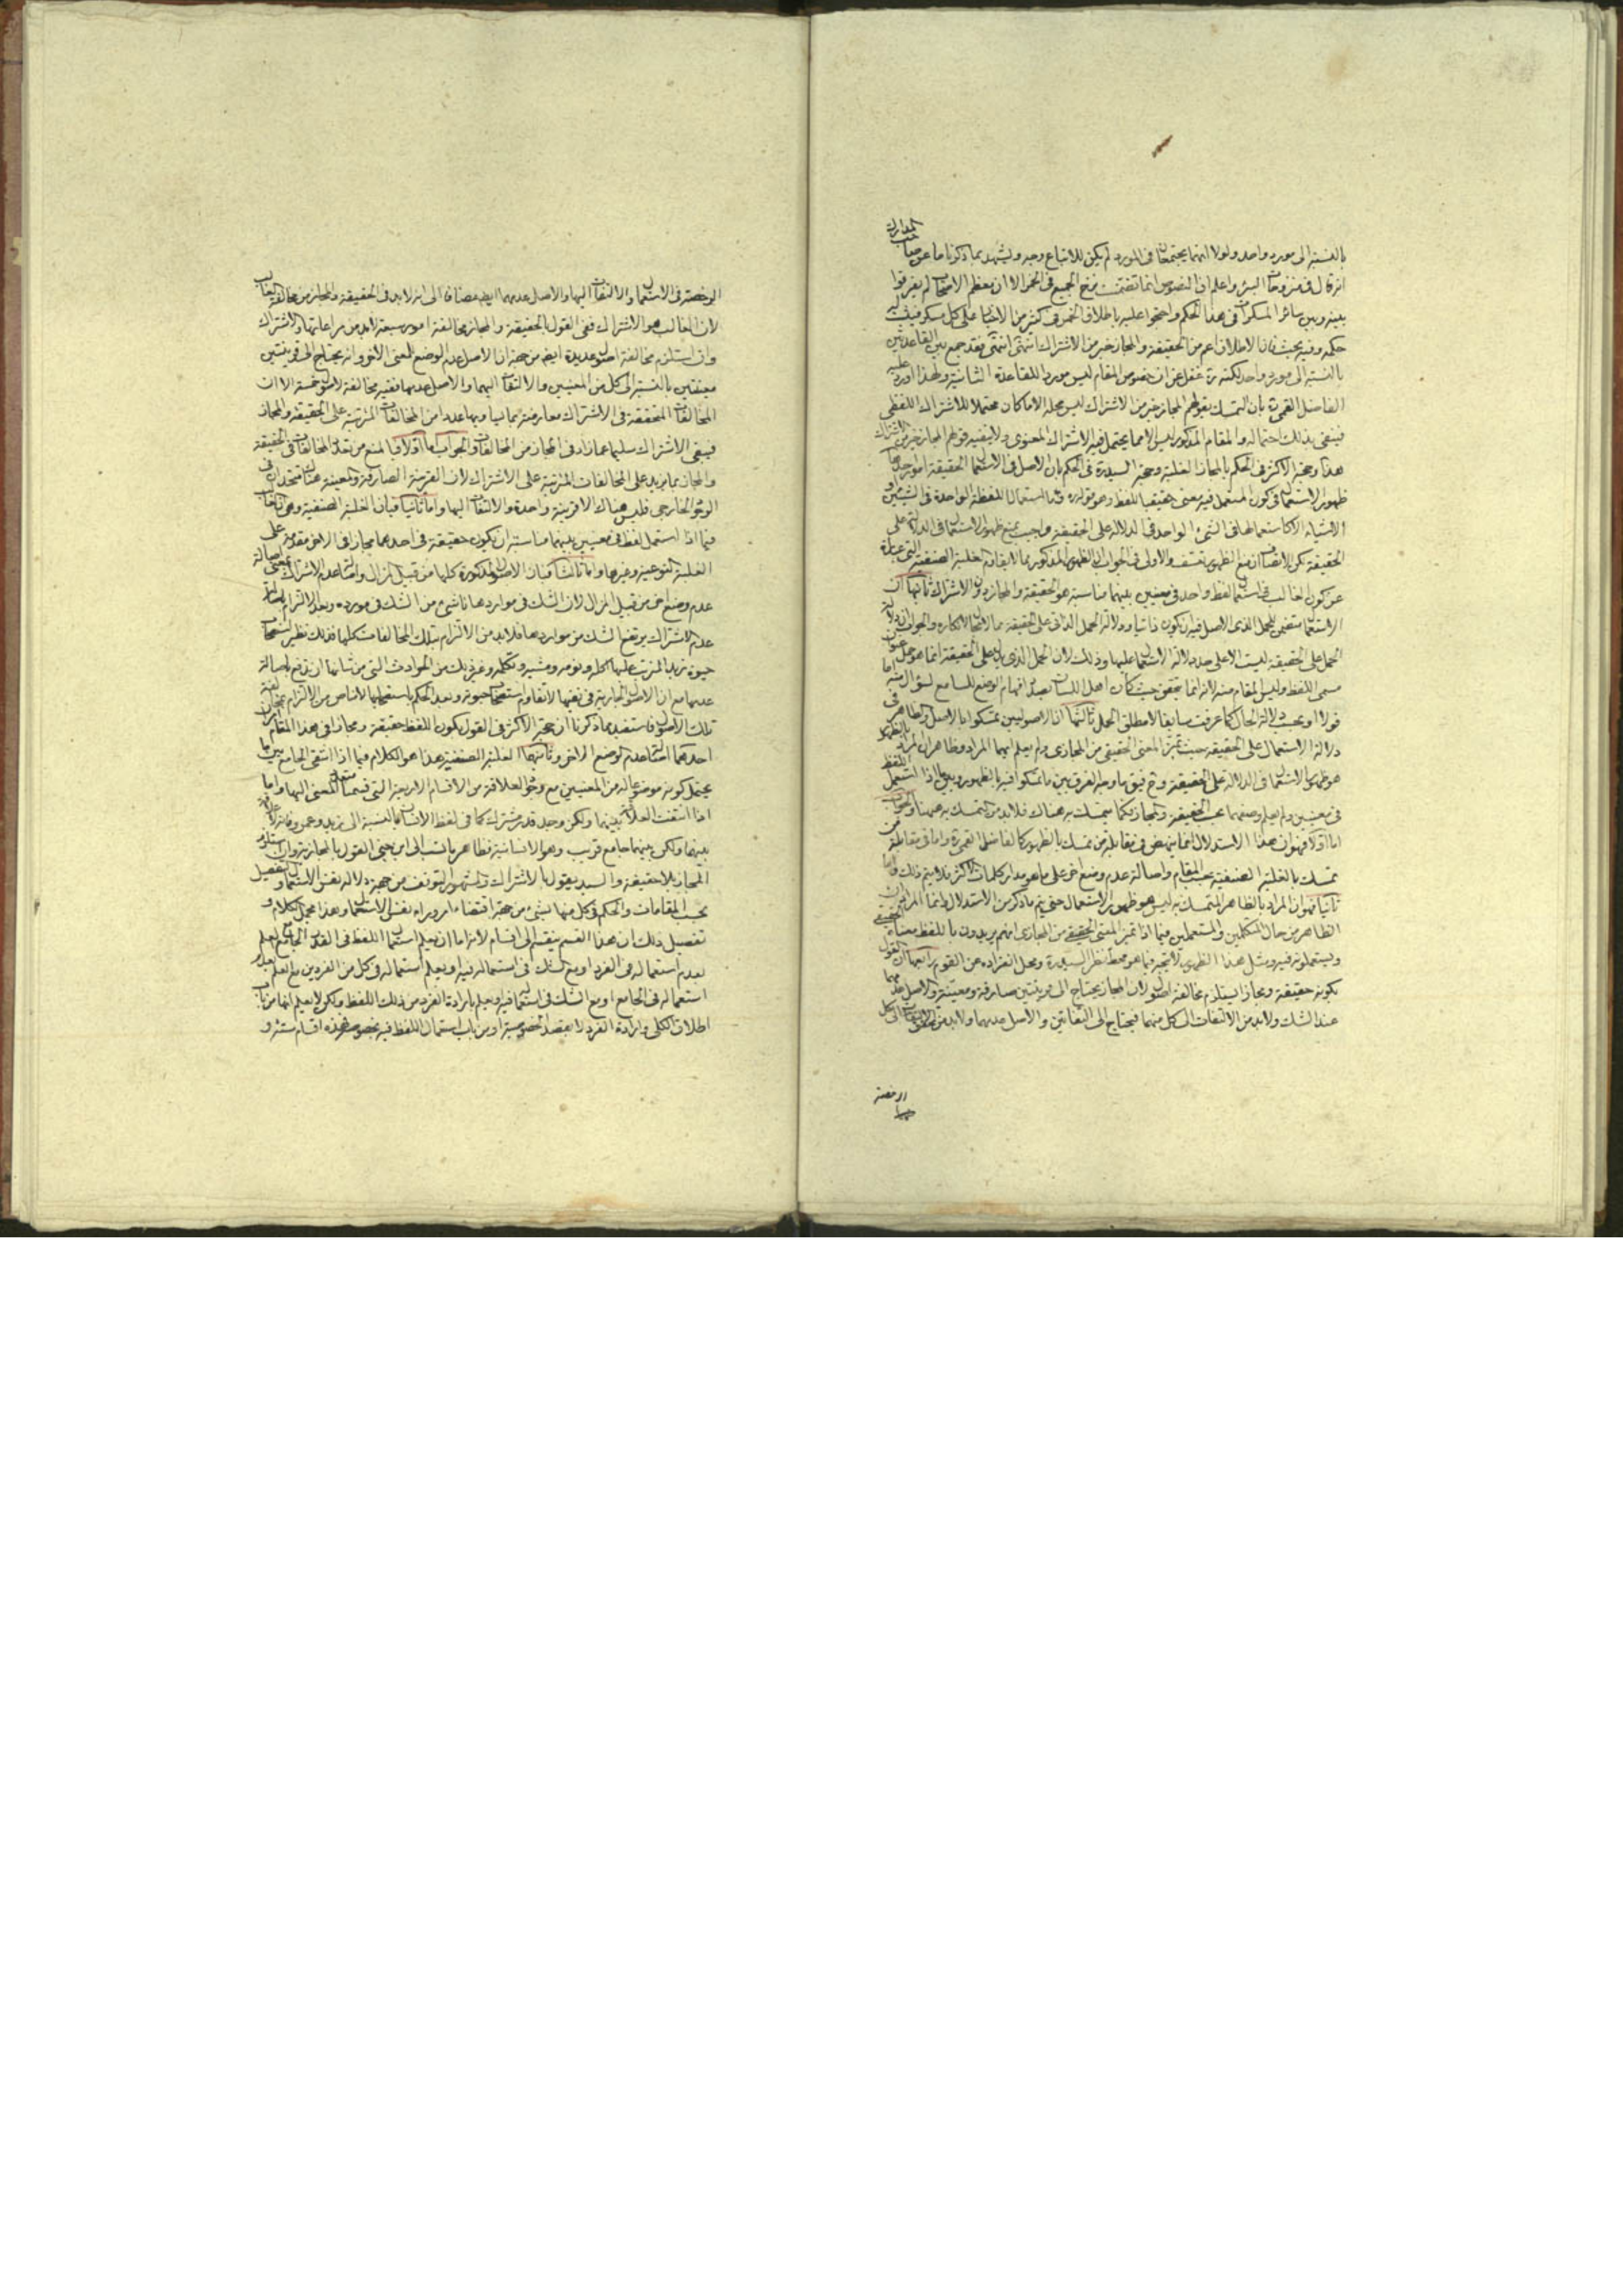 المدارك
بالنسبة الى مورد واحد ولولا انهما يجتمعان في المورد لم يكن للاتباع وجه ويشهد بما ذكرنا ما عن صاحب
انه قال في منزوحات البئر واعلم ان النصوص انما تضمنت نزح الجميع في الخمر الا ان معظم الاصحاب لم يفرقوا
بينه وبين سائر المسكرات في هذا الحكم واحتجوا عليه باطلاق الخمر في كثير من الاخبار على كل مسكر فيثبت له
حكمه وفيه بحث فان الاطلاق اعم من الحقيقة والمجاز خير من الاشتراك انتهى فقد جمع بين القاعدتين
بالنسبة الى مورد واحد لكنه غفل عن ان خصوص المقام ليس موردا للقاعدة الثانية ولهذا اورد عليه
الفاضل القمي بان التمسك بقولهم المجاز خير من الاشتراك ليس محله الا ما كان محتملا للاشتراك اللفظي
فينفى بذلك احتماله والمقام المذكور ليس الا مما يحتمل فيه الاشتراك المعنوي ولا ينفيه قولهم المجاز خير من الاشتراك
هذا وحجة الاكثر في الحكم بالمجاز الغلبة وحجة السيد في الحكم بان الاصل في الاستعمال الحقيقة امور احدها
ظهور الاستعمال في كون المستعمل فيه معنى حقيقيا للفظ وهو قوله وما استعمال اللفظة الواحدة في الشيئين او
الاشياء الا كاستعمالها في الشيء الواحد في الدلالة على الحقيقة واجيب بمنع ظهور الاستعمال في الدلالة على
الحقيقة لكن الانصاف ان منع الظهور تعسف والاولى في الجواب ان الظهور المذكور مما لا يقاوم الغلبة الصنفية التي عبارة
عن كون الغالب في استعمال لفظ واحد في معنيين بينهما مناسبة هو الحقيقة والمجاز دون الاشتراك ثانيها ان
الاستعمال متضمن للحمل الذي الاصل فيه ان يكون ذاتيا ودلالة الحمل الذاتي على الحقيقة مما لا مجال لانكاره والجواب ان دلالة
الحمل على الحقيقة ليست الا على حد دلالة الاستعمال عليها وذلك لان الحمل الذي يدل على الحقيقة انما هو حمل عنوان
مسمى اللفظ وليس المقام منه لانه انما يتحقق حيث كان اهل اللسان بصدد افهام الوضع للسامع لسؤال منه اما
قولا او بحسب دلالة الحال كما عرفت سابقا لا مطلق الحمل ثالثها ان الاصوليين تمسكوا باصالة الظاهر في
دلالة الاستعمال على الحقيقة حيث تميز المعنى الحقيقي من المجازي ولم يعلم ايهما المراد وظاهر ان المراد بالظهور
هو ظهور الاستعمال في الدلالة على الحقيقة وح فيق ما وجه الفرق بين ما تمسكوا فيه بالظهور وبين ما اذا استعمل اللفظ
في معنيين ولم يعلم وصفهما بحسب الحقيقة والمجاز فكما يتمسك به هناك فلا بد من التمسك به ههنا والجواب
اما اولا فهو ان هذا الاستدلال انما ينهض في مقابلة من تمسك بالظهور كالفاضل القمي واما في مقابلة من
تمسك بالغلبة الصنفية بحسب المقام واصالة عدم وضع اخر على ما هو مدار كلمات الاكثر فلا يتم ذلك واما
ثانيا فهو ان المراد بالظاهر المتمسك به ليس هو ظهور الاستعمال حتى يتم ما ذكر من الاستدلال وانما المراد ان
الظاهر من حال المتكلمين والمستعملين فيما اذا تميز المعنى الحقيقي من المجازي انهم يريدون باللفظ معناه الحقيقي
ويستعملونه فيه ومثل هذا الظهور لا يتجه فيما هو محط نظر السيد ومحل انفراده عن القوم رابعها ان القول
بكونه حقيقة ومجازا يستلزم مخالفة اصول لان المجاز يحتاج الى قرينتين صارفة ومعينة والاصل عدمهما
عند الشك ولا بد من الالتفات الى كل منهما فيحتاج الى التفاتين والاصل عدمهما ولا بد من
الرخصة
الرخصة في الاستعمال والالتفات اليها والاصل عدمهما ايض مضافا الى انه لا بد في الحقيقة والمجاز من مخالفة الغالب
لان الغالب هو الاشتراك ففي القول بالحقيقة والمجاز مخالفة امور سبعة لا بد من مراعاتها والاشتراك
وان استلزم مخالفة اصول عديدة ايض من جهة ان الاصل عدم الوضع للمعنى الاخر وانه يحتاج الى قرينتين
معينتين بالنسبة الى كل من المعنيين والالتفات اليهما والاصل عدمها ففيه مخالفة لاصول خمسة الا ان
المخالفات المتحققة في الاشتراك معارضة بما يساويها عددا من المخالفات المترتبة على الحقيقة والمجاز
فيبقى الاشتراك سليما عما زاد في المجاز من المخالفات والجواب اما اولا فبالمنع من تعدد المخالفات في الحقيقة
والمجاز مما يزيد على المخالفات المترتبة على الاشتراك لان القرينة الصارفة والمعينة هنا متحدان في
الوجود الخارجي فليس هناك الا قرينة واحدة والالتفات اليها واما ثانيا فبان الغلبة الصنفية وهي ان الغالب
فيما اذا استعمل لفظ في معنيين بينهما مناسبة ان يكون حقيقة في احدهما مجازا في الاخر مقدمة على
الغلبة النوعية وغيرها واما ثالثا فبان الاصول المذكورة كلها من قبيل المزال واصالة عدم الاشتراك بمعنى اصالة
عدم وضع اخر من قبيل المزيل لان الشك في مواردها ناشئ من الشك في مورده وبعد الالتزام باصالة
عدم الاشتراك يرتفع الشك من مواردها فلا بد من الالتزام بتلك المخالفات كلها فذلك نظير استصحاب
حيوة زيد المترتب عليها اكله ونومه ومشيه وتكلمه وغير ذلك من الحوادث التي من شانها ان يدفع باصالة
عدمها مع ان الاصول الجارية في نفيها لا تقاوم استصحاب حيوته وبعد الحكم باستصحابها لا مناص من الالتزام بمخالفة
تلك الاصول فاستفيد مما ذكرنا ان حجة الاكثر في القول بكون اللفظ حقيقة ومجازا في هذا المقام امران
احدهما اصالة عدم الوضع الاخر وثانيهما الغلبة الصنفية هذا هو الكلام فيما اذا انتفى الجامع بين ما
يحتمل كونه موضوعا له من المعنيين مع وجود العلاقة من الاقسام الاربعة التي قسمنا متعدد المعنى اليها واما
اذا انتفت العلاقة بينهما ولكن وجد قدر مشترك كما في لفظ الانسان بالنسبة الى زيد وعمرو فانه لا علاقة
بينهما ولكن بينهما جامع قريب وهو الانسانية فظاهر ما نسب الى ابن جني القول بالمجازية وان استلزم
المجاز بلا حقيقة والسيد يقول بالاشتراك والمشهور التوقف من جهة دلالة نفس الاستعمال والتفصيل
بحسب المقامات والحكم في كل منها بشيء من جهة اقتضاء امر وراء نفس الاستعمال وهذا مجمل الكلام و
تفصيل ذلك ان هذا القسم ينقسم الى اقسام لانه اما ان يعلم استعمال اللفظ في القدر الجامع مع العلم
بعدم استعماله في الفرد او مع الشك في استعماله فيه او يعلم استعماله في كل من الفردين مع العلم بعدم
استعماله في الجامع او مع الشك في استعماله فيه او يعلم بارادة الفرد من ذلك اللفظ ولكن لا يعلم انها من باب
اطلاق الكلي وارادة الفرد لا بقصد الخصوصية او من باب استعمال اللفظ فيه بخصوصه فهذه اقسام ستة و